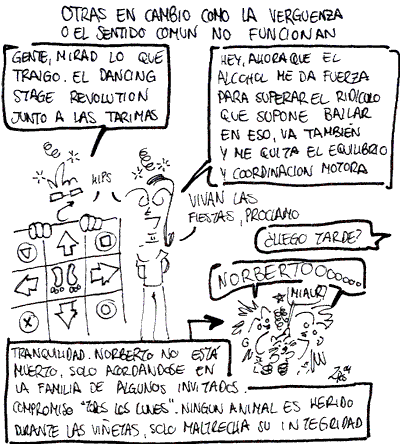 OTRAS EN CAMBIO COMO LA VERGUENZA
O EL SENTIDO COMUN NO FUNCIONAN
GENTE, MIRAD LO QUE
TRAIGO. EL DANCING
STAGE REVOLUTION
JUNTO A LAS TARIMAS
HEY, AHORA QUE EL
ALCOHOL ME DA FUERZA
PARA SUPERAR EL RIDÍCULO
QUE SUPONE BAILAR
EN ESO, VA TAMBIÉN
Y ME QUITA EL EQUILIBRIO
Y COORDINACION MOTORA
HIPS
VIVAN LAS
FIESTAS, PROCLAMO
¿LLEGO TARDE?
NORBERTOOOOOOO
MIAUR!
TRANQUILIDAD. NORBERTO NO ESTÁ
MUERTO, SOLO ACORDANDOSE EN
LA FAMILIA DE ALGUNOS INVITADOS.
COMPROMISO "ZOES LOS LUNES". NINGUN ANIMAL ES HERIDO
DURANTE LAS VIÑETAS, SOLO MALTRECHA SU INTEGRIDAD